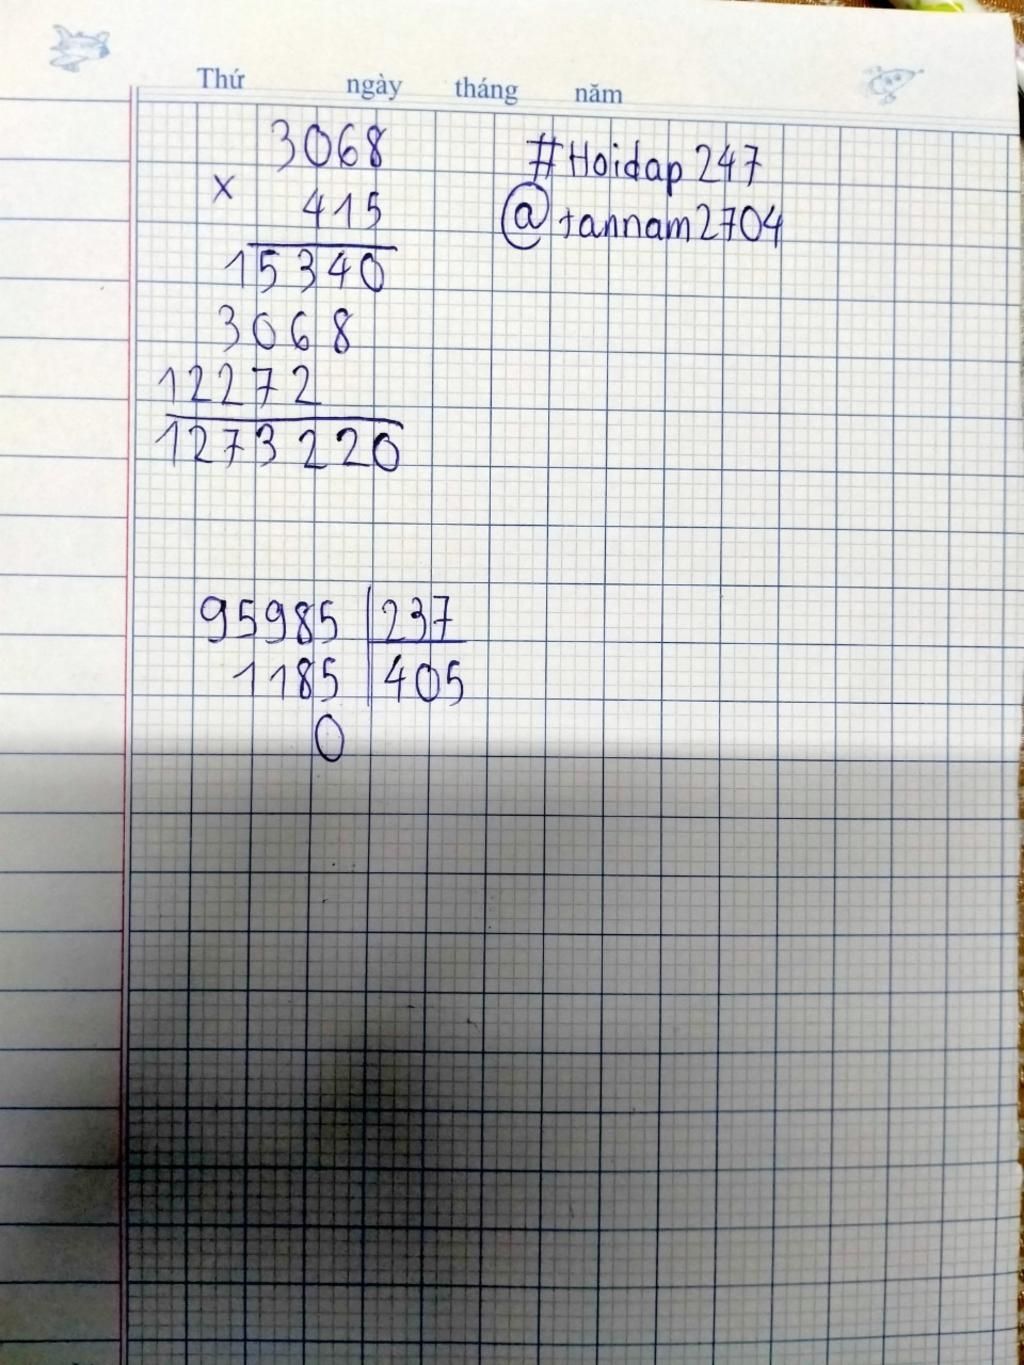 Thứ ngày tháng năm
3068
x
415
15340
3068
12272
1273220
#Hoidap247
@tannam2704
95985 237
1185 405
0